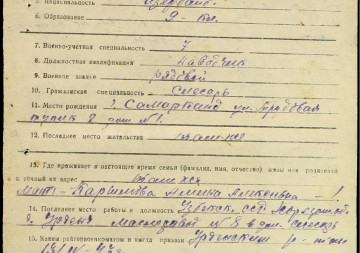 5. Национальность
6. Образование 9-кл.
7. Военно-учетная специальность 7
8. Должностная квалификация наводчик
9. Военное звание рядовой
10. Гражданская специальность слесарь
11. Место рождения г. Самарканд ул. Трудовая
тупик 2 дом №1.
12. Последнее место жительства там же
13. Где проживает в настоящее время семья (фамилия, имя, отчество) жены или родителей
и точный их адрес там же
мать - Каримова Амина
14. Последнее место работы и должность Узбекск. ССР
г. Ургенч № 8 слесарь
15. Каким райгорвоенкоматом и когда призван Ургенским р-